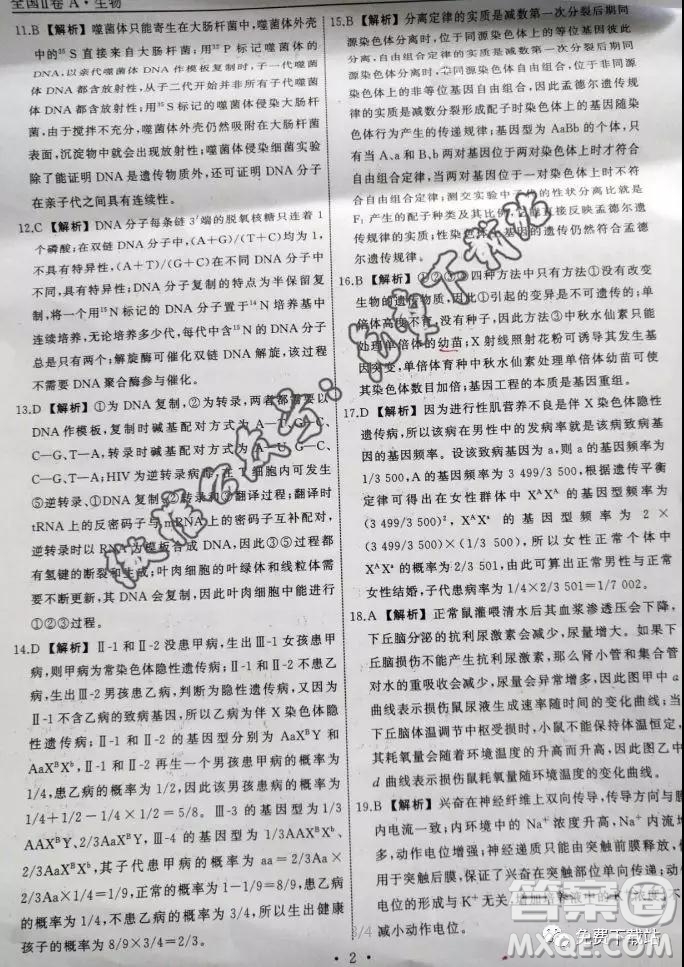 全国Ⅱ卷 A·生物
11.B 【解析】噬菌体只能寄生在大肠杆菌中,噬菌体外壳
中的³⁵S 直接来自大肠杆菌;用³²P 标记噬菌体的
DNA,以亲代噬菌体 DNA 作模板复制时,子一代噬菌
体 DNA 都含放射性,从子二代开始并非所有子代噬菌
体 DNA 都含放射性;用³⁵S 标记的噬菌体侵染大肠杆
菌,由于搅拌不充分,噬菌体外壳仍然吸附在大肠杆菌
表面,沉淀物中就会出现放射性;噬菌体侵染细菌实验
除了能证明 DNA 是遗传物质外,还可证明 DNA 分子
在亲子代之间具有连续性。
12.C 【解析】DNA 分子每条链 3′端的脱氧核糖只连着 1
个磷酸;在双链 DNA 分子中,(A+G)/(T+C)均为 1,
不具有特异性,(A+T)/(G+C)在不同 DNA 分子中
不同,具有特异性;DNA 分子复制的特点为半保留复
制,将一个用¹⁵N 标记的 DNA 分子置于¹⁴N 培养基中
连续培养,无论培养多少代,每代中含¹⁵N 的 DNA 分子
总是只有两个;解旋酶可催化双链 DNA 解旋,该过程
不需要 DNA 聚合酶参与催化。
13.D 【解析】①为 DNA 复制,②为转录,两者都需要以
DNA 作模板,复制时碱基配对方式为 A—T、G—C、
C—G、T—A,转录时碱基配对方式为 A—U、G—C、
C—G、T—A;HIV为逆转录病毒,在 T 细胞内可发生
⑤逆转录、①DNA 复制、②转录和③翻译过程;翻译时
tRNA 上的反密码子与mRNA上的密码子互补配对,
逆转录时以 RNA为模板合成 DNA,因此③⑤过程都
有氢键的断裂和生成;叶肉细胞的叶绿体和线粒体需
要不断更新,其 DNA 会复制,因此叶肉细胞中能进行
①②③过程。
14.D 【解析】Ⅱ-1 和 Ⅱ-2 没患甲病,生出 Ⅲ-1 女孩患甲
病,则甲病为常染色体隐性遗传病;Ⅱ-1 和 Ⅱ-2 不患乙
病,生出 Ⅲ-2 男孩患乙病,判断为隐性遗传病,又因为
Ⅱ-1 不含乙病的致病基因,所以乙病为伴 X 染色体隐
性遗传病;Ⅱ-1 和 Ⅱ-2 的基因型分别为 AaXᴮY 和
AaXᴮXᵇ,Ⅱ-1 和 Ⅱ-2 生出一个男孩患甲病的概率为
1/4,患乙病的概率为 1/2,因此该男孩患病的概率为
1/4+1/2−1/4×1/2=5/8。Ⅲ-3 的基因型为 1/3
AAXᴮY、2/3AaXᴮY,Ⅲ-4 的基因型为 1/3AAXᴮXᵇ、
2/3AaXᴮXᵇ,其子代患甲病的概率为 aa=2/3×
2/3×1/4=1/9,正常的概率为 1−1/9=8/9,患乙病
的概率为 1/4,不患乙病的概率为 3/4,所以生出健康
孩子的概率为 8/9×3/4=2/3。
15.B 【解析】分离定律的实质是减数第一次分裂后期同
源染色体分离时,位于同源染色体上的等位基因分
离,自由组合定律的实质是减数第一次分裂后期同
源染色体分离时,非同源染色体自由组合,位于非同源
染色体上的非等位基因自由组合,因此孟德尔遗传规
律的实质是减数分裂形成配子时染色体上的基因随
染色体行为产生的传递规律;基因型为 AaBb 的个体,只
有当 A、a 和 B、b 两对基因位于两对染色体上时才符合
自由组合定律;测交实验中子代的性状分离比就是
F₁ 产生的配子种类及其比例,它能直接反映孟德尔遗
传规律的实质;性染色体上基因的遗传仍然符合孟德
尔遗传规律。
16.B 【解析】①②③④四种方法中只有方法①没有改变
生物的遗传物质,因此①引起的变异是不可遗传的;单
倍体高度不育,没有种子,因此方法③中秋水仙素只能
处理单倍体的幼苗;X 射线照射花粉可诱导其发生基
因突变,单倍体育种中秋水仙素处理单倍体幼苗可使
其染色体数目加倍;基因工程的本质是基因重组。
17.D 【解析】因为进行性肌营养不良是伴 X 染色体隐性
遗传病,所以该病在男性中的发病率就是该病致病基
因的基因频率。设该致病基因为 a,则 a 的基因频率为
1/3 500,A 的基因频率为 3 499/3 500,根据遗传平衡
定律可得出在女性群体中 XᴬXᴬ 的基因型频率为
(3 499/3 500)²,XᴬXᵃ 的基因型频率为 2×
(3 499/3 500)×(1/3 500),所以女性正常个体中
XᴬXᵃ 的概率为 2/3 501,因此当正常男性与正常
女性结婚,子代患病率为 1/4×2/3 501=1/7 002。
18.A 【解析】正常鼠灌喂清水后其血浆渗透压会下降,
下丘脑分泌的抗利尿激素会减少,尿量增多。如果下
丘脑损伤不能产生抗利尿激素,那么肾小管和集合管
对水的重吸收会减少,尿量会更多,因此图甲中 a
曲线表示损伤鼠尿液生成速率随时间的变化曲线;当
下丘脑体温调节中枢受损时,小鼠不能保持体温恒定,
其耗氧量会随着环境温度的升高而升高,因此图乙中
d 曲线表示损伤鼠耗氧量随环境温度的变化曲线。
19.B 【解析】兴奋在神经纤维上双向传导,与神经纤维膜
内电流一致;内环境中的 Na⁺ 浓度升高,Na⁺ 内流增
多,动作电位增强;神经递质只能由突触前膜释放,作
用于突触后膜,保证了兴奋在突触部位单向传递;动作
电位的产生与 K⁺ 无关,增加培养液中的 K⁺ 浓度,不
减小动作电位。
· 2 ·
3/4
微信公众号:免费下载站
答案圈
MXQE.COM
免费下载站